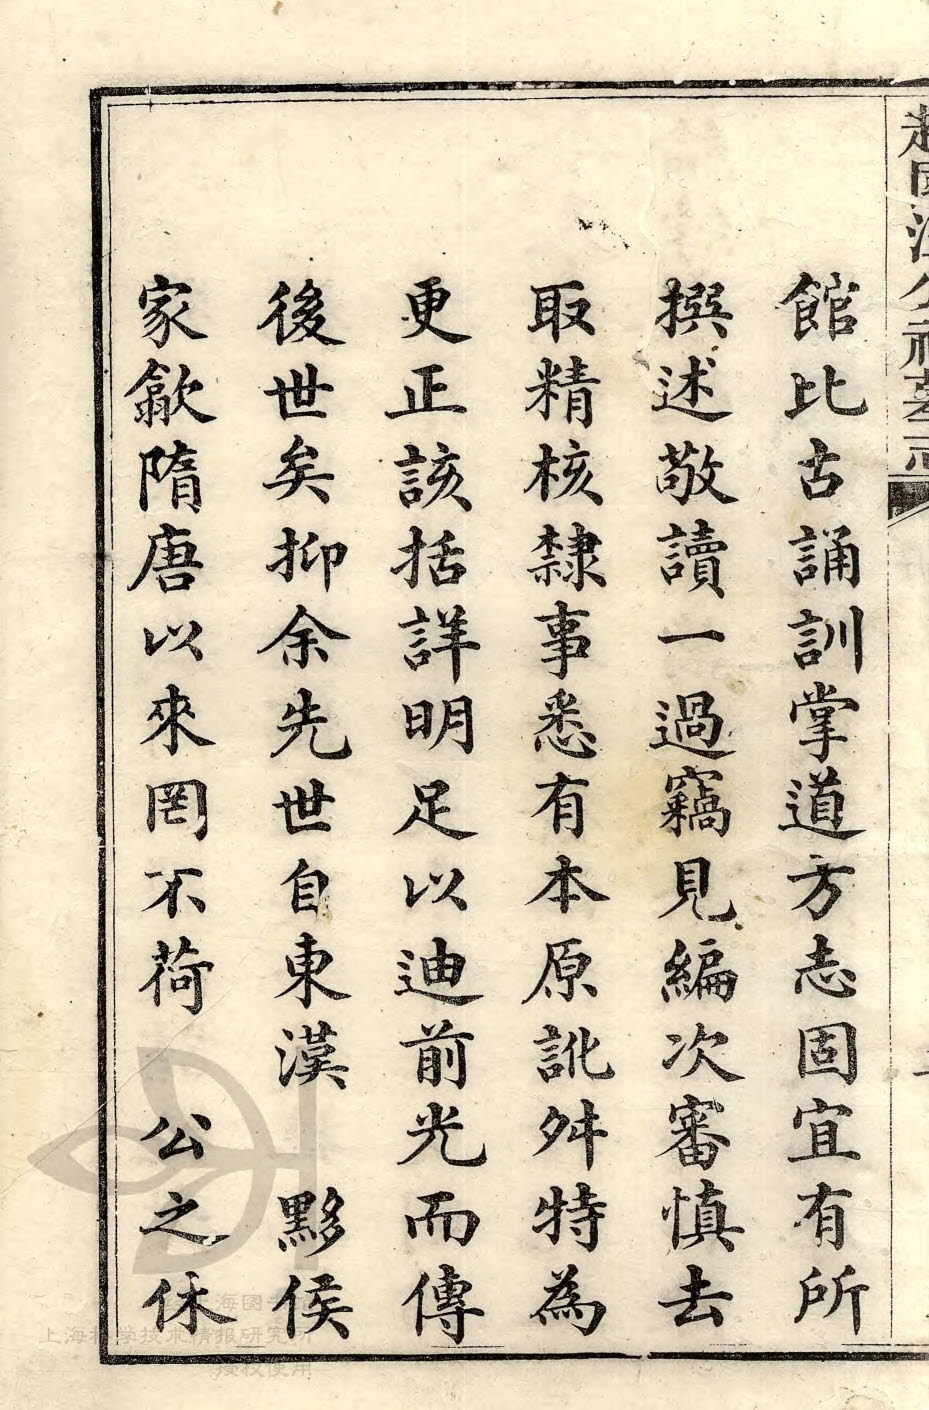 館比古誦訓掌道方志固宜有所
撰述敬讀一過竊見編次審慎去
取精核隸事悉有本原訛舛特為
更正該括詳明足以迪前光而傳
後世矣抑余先世自東漢 黟侯
家歙隋唐以來罔不荷 公之休
上海科学技术情报研究所